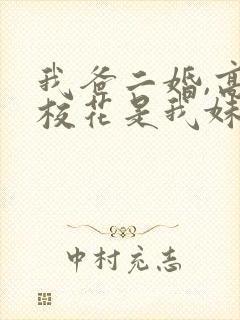 我爸二婚,高
校花是我妹
中村充志